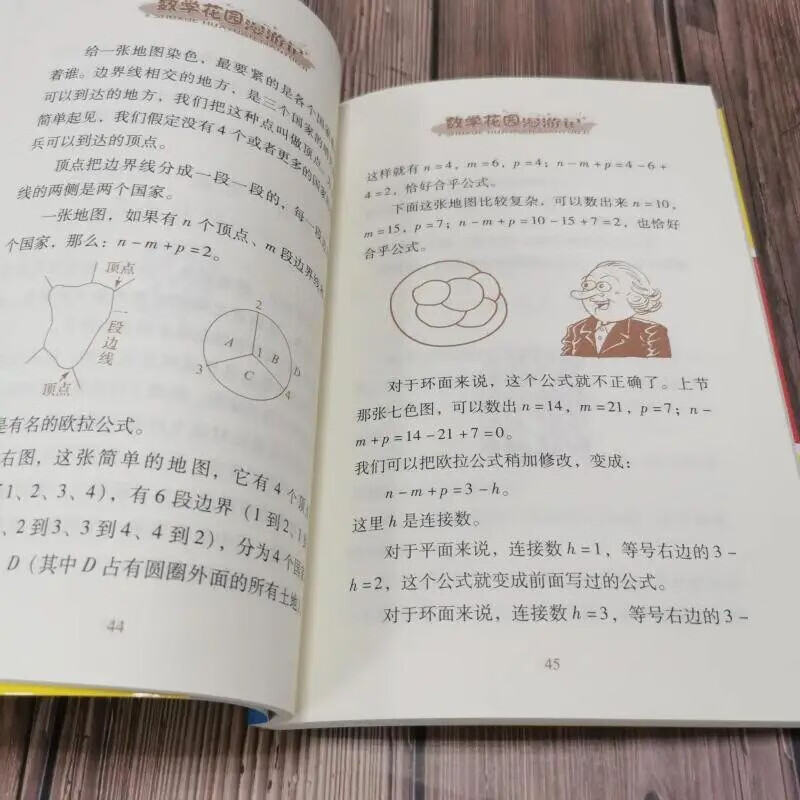 数学花园漫游记
给一张地图染色，最要紧的是各个国家
着谁。边界线相交的地方，是三个国家的
可以到达的地方，我们把这种点叫做顶点
简单起见，我们假定没有4个或者更多的国家
兵可以到达的顶点。
顶点把边界线分成一段一段的，每一段
线的两侧是两个国家。
一张地图，如果有n个顶点、m段边界线
个国家，那么：n－m＋p＝2。
顶点
一段边线
顶点
2
A
1
B
D
3
C
4
是有名的欧拉公式。
右图，这张简单的地图，它有4个顶
1、2、3、4），有6段边界（1到2、1
、2到3、3到4、4到2），分为4个国
D（其中D占有圆圈外面的所有土地
44
数学花园漫游记
这样就有n＝4，m＝6，p＝4；n－m＋p＝4－6＋
4＝2，恰好合乎公式。
下面这张地图比较复杂，可以数出来n＝10，
m＝15，p＝7；n－m＋p＝10－15＋7＝2，也恰好
合乎公式。
对于环面来说，这个公式就不正确了。上节
那张七色图，可以数出n＝14，m＝21，p＝7；n－
m＋p＝14－21＋7＝0。
我们可以把欧拉公式稍加修改，变成：
n－m＋p＝3－h。
这里h是连接数。
对于平面来说，连接数h＝1，等号右边的3－
h＝2，这个公式就变成前面写过的公式。
对于环面来说，连接数h＝3，等号右边的3－
45